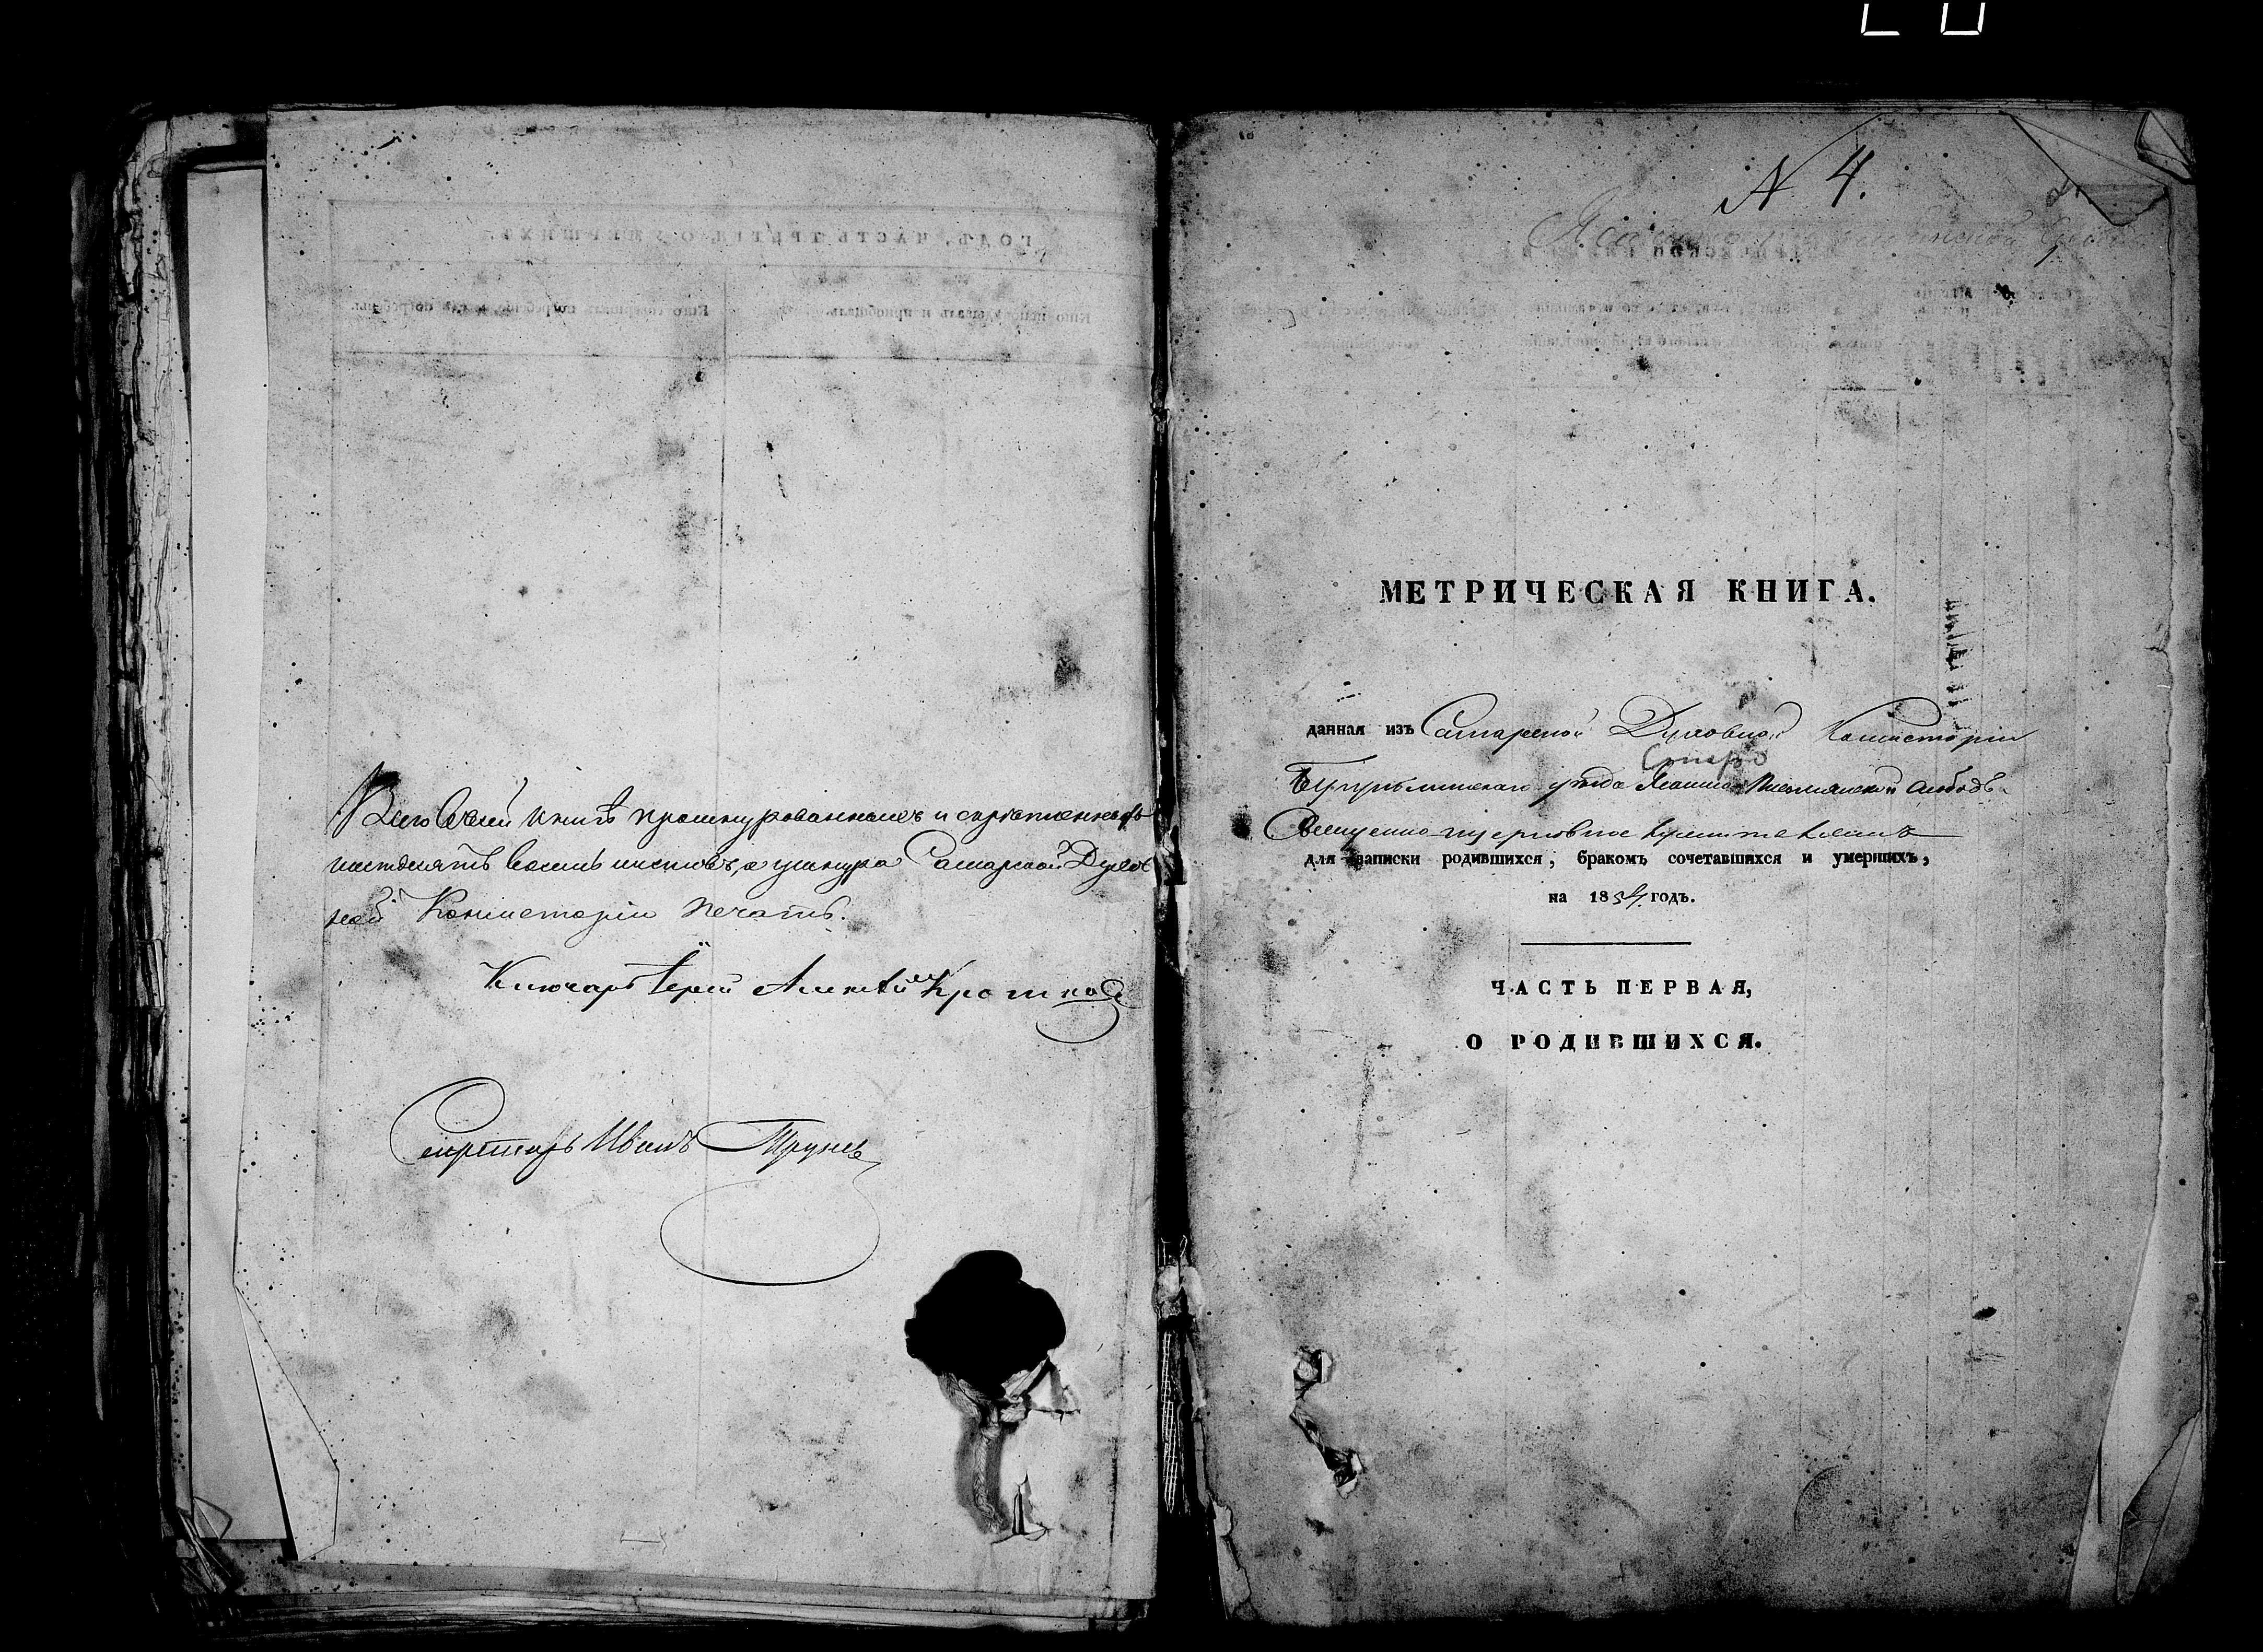 Всего въ сей книгѣ прошнурованныхъ и скрѣпленныхъ
шестдесятъ восемь листовъ, а у шнура Самарской Духов
ной Консисторіи печать.
Ключарь Іерей Алексѣй Кротковъ
Секретарь Иванъ
N 4.
МЕТРИЧЕСКАЯ КНИГА.
данная изъ Самарской Духовной Консисторіи
Старо
Бугульминскаго уѣзда Письмянской слободѣ
Священно церковно служителямъ
для записки родившихся, бракомъ сочетавшихся и умершихъ,
на 1854 годъ.
ЧАСТЬ ПЕРВАЯ,
О РОДИВШИХСЯ.